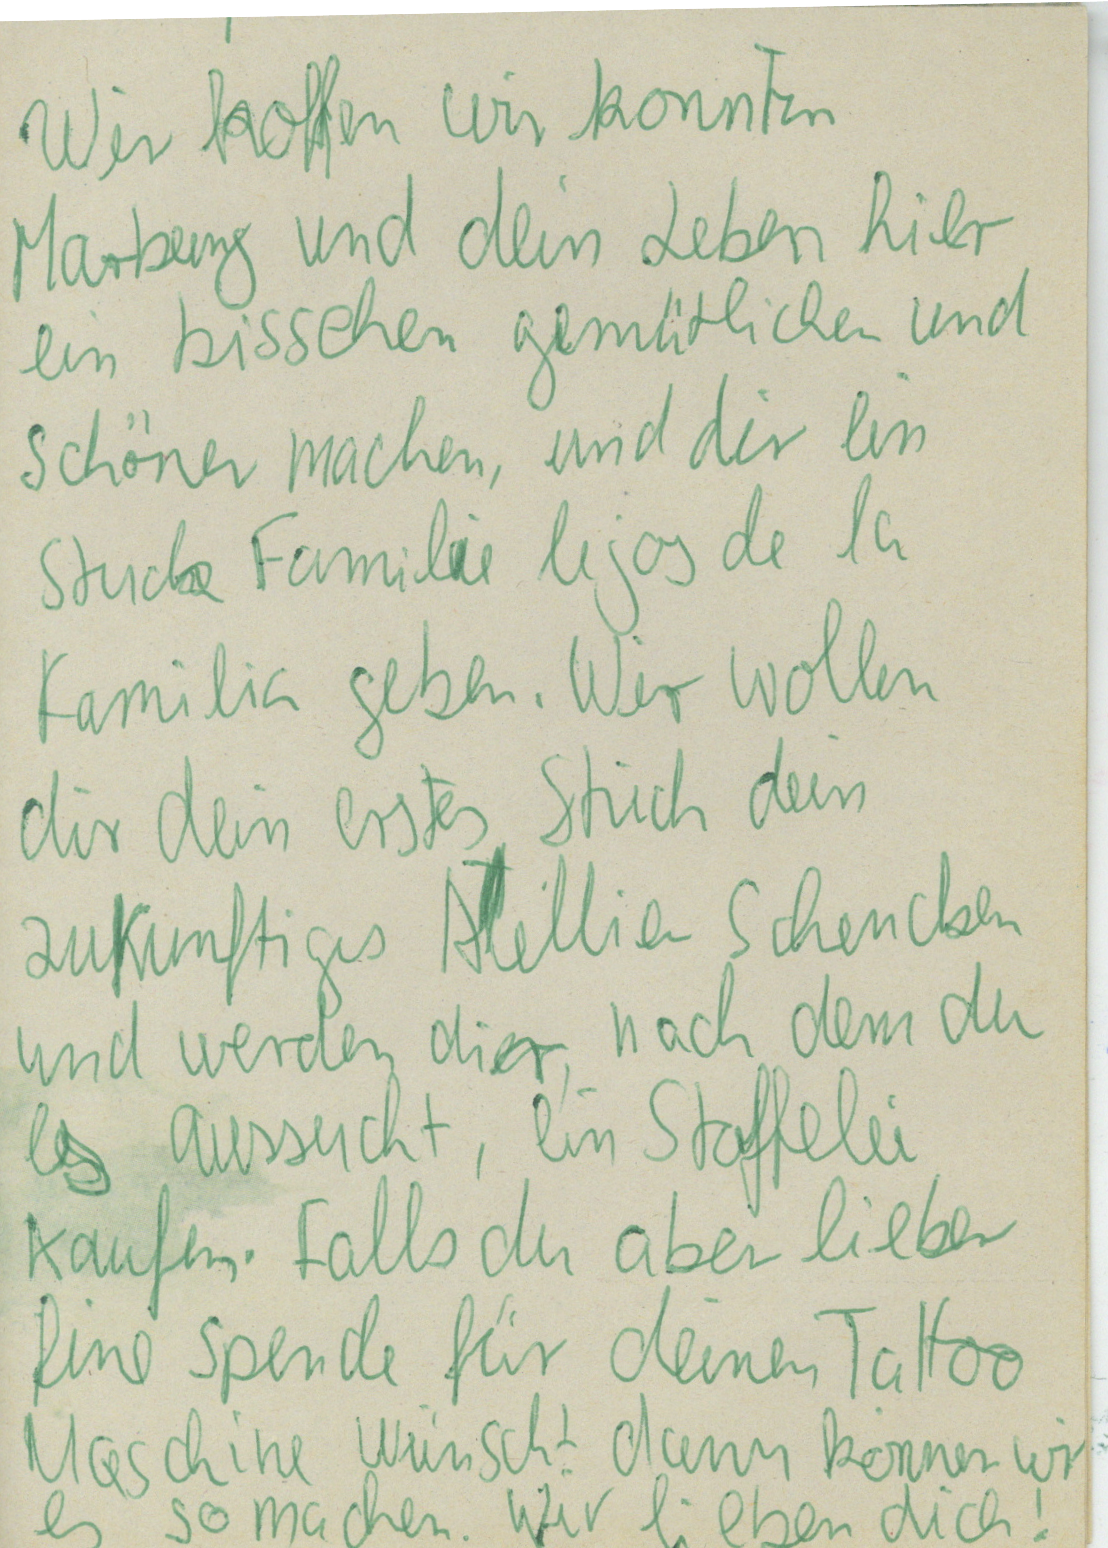 Wir hoffen wir konnten
Marburg und dein Leben hier
ein bisschen gemütlicher und
schöner machen, und dir ein
Stuck Familie lejos de la
Familia geben. Wir wollen
dir dein erstes Stück dein
zukunftiges Atellier schencken
und werden dir, nach dem du
es aussucht, ein Staffelei
kaufen. Falls du aber lieber
Eine spende für deinen Tattoo
Maschine wünscht dann können wir
es so machen. Wir lieben dich!